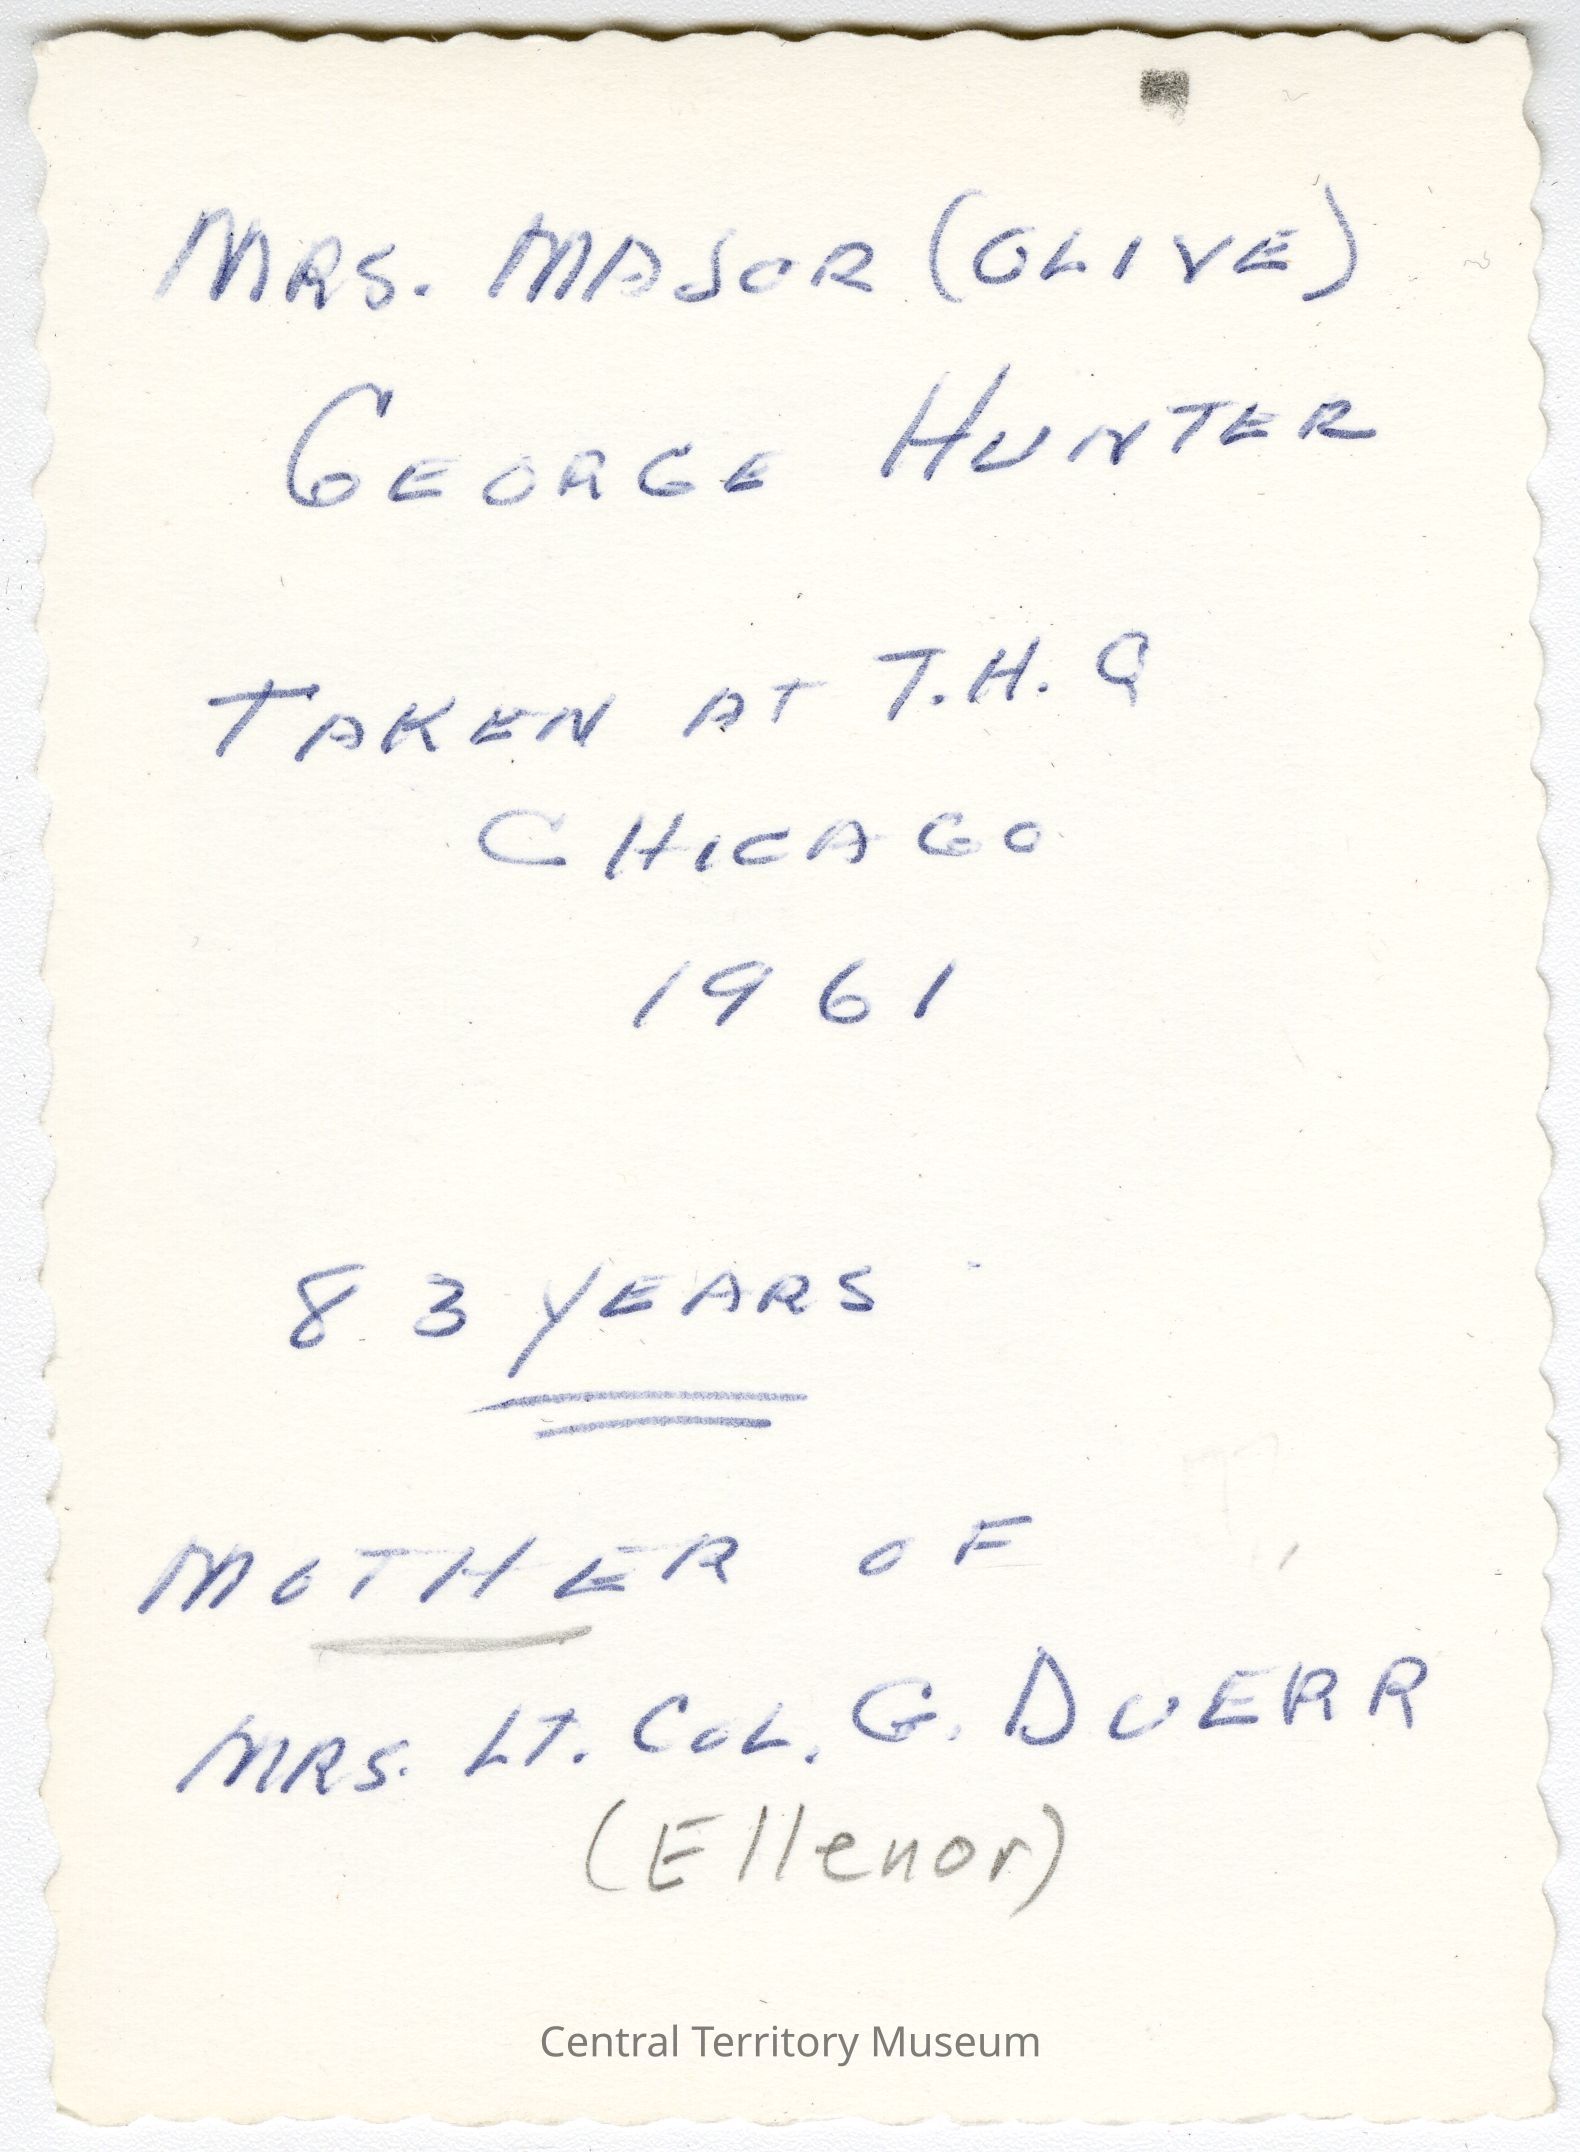 MRS. MAJOR (OLIVE)
GEORGE HUNTER
TAKEN AT T.H.Q
CHICAGO
1961
83 YEARS
MOTHER OF
MRS. LT. COL. G. DUERR
(Ellenor)
Central Territory Museum